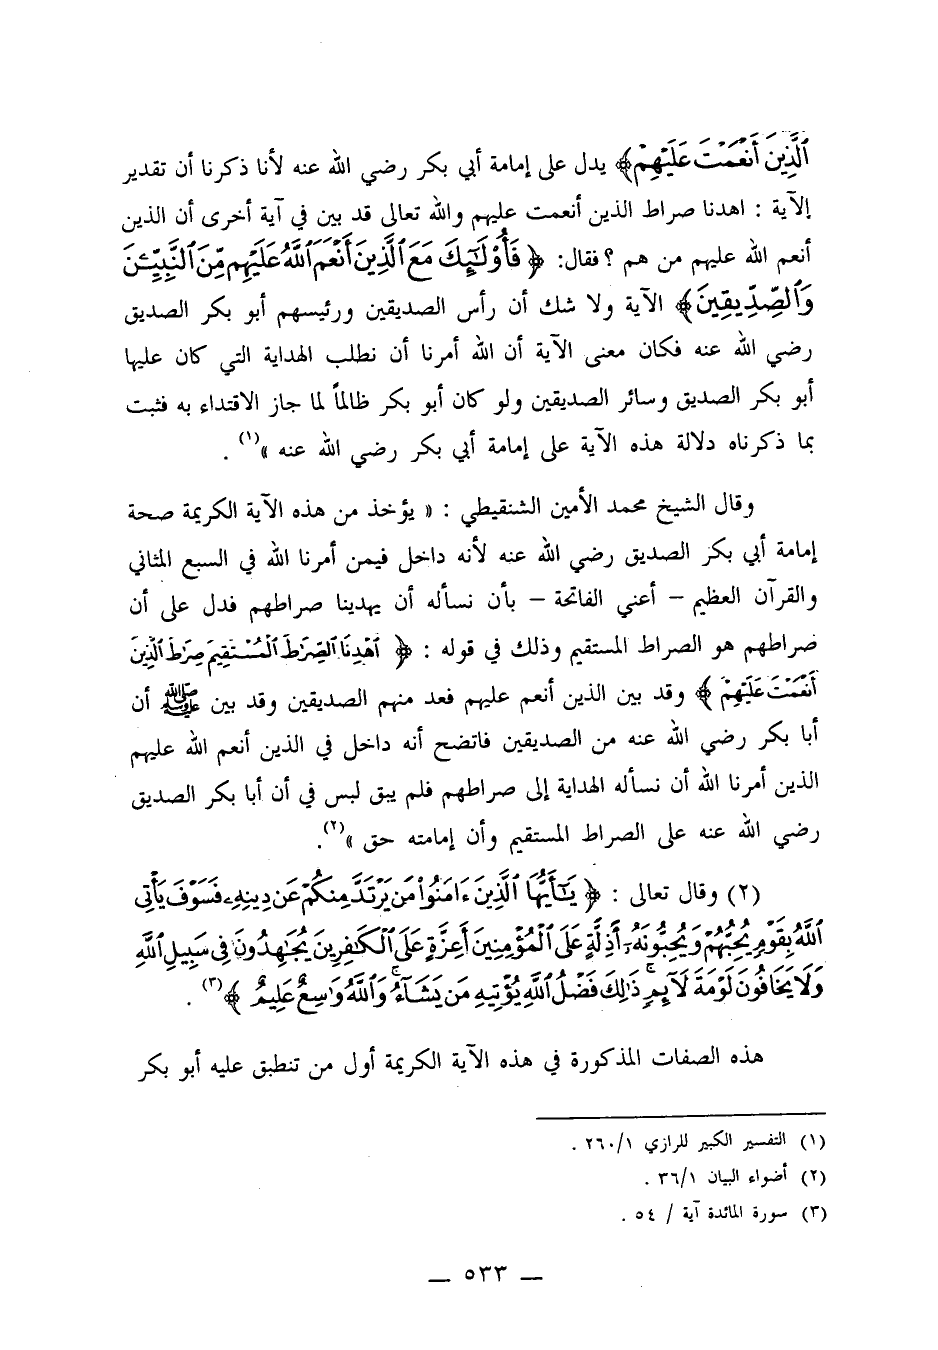 ٱلَّذِينَ أَنْعَمْتَ عَلَيْهِمْ﴾ يدل على إمامة أبي بكر رضي الله عنه لأنا ذكرنا أن تقدير
الآية : اهدنا صراط الذين أنعمت عليهم والله تعالى قد بين في آية أخرى أن الذين
أنعم الله عليهم من هم ؟ فقال: ﴿ فَأُوْلَٰٓئِكَ مَعَ ٱلَّذِينَ أَنْعَمَ ٱللَّهُ عَلَيْهِم مِّنَ ٱلنَّبِيِّـۧنَ
وَٱلصِّدِّيقِينَ﴾ الآية ولا شك أن رأس الصديقين ورئيسهم أبو بكر الصديق
رضي الله عنه فكان معنى الآية أن الله أمرنا أن نطلب الهداية التي كان عليها
أبو بكر الصديق وسائر الصديقين ولو كان أبو بكر ظالماً لما جاز الاقتداء به فثبت
بما ذكرناه دلالة هذه الآية على إمامة أبي بكر رضي الله عنه »(١) .
وقال الشيخ محمد الأمين الشنقيطي : « يؤخذ من هذه الآية الكريمة صحة
إمامة أبي بكر الصديق رضي الله عنه لأنه داخل فيمن أمرنا الله في السبع المثاني
والقرآن العظيم – أعني الفاتحة – بأن نسأله أن يهدينا صراطهم فدل على أن
صراطهم هو الصراط المستقيم وذلك في قوله : ﴿ ٱهْدِنَا ٱلصِّرَٰطَ ٱلْمُسْتَقِيمَ صِرَٰطَ ٱلَّذِينَ
أَنْعَمْتَ عَلَيْهِمْ ﴾ وقد بين الذين أنعم عليهم فعد منهم الصديقين وقد بين ﷺ أن
أبا بكر رضي الله عنه من الصديقين فاتضح أنه داخل في الذين أنعم الله عليهم
الذين أمرنا الله أن نسأله الهداية إلى صراطهم فلم يبق لبس في أن أبا بكر الصديق
رضي الله عنه على الصراط المستقيم وأن إمامته حق »(٢).
(٢) وقال تعالى : ﴿ يَـٰٓأَيُّهَا ٱلَّذِينَ ءَامَنُوا۟ مَن يَرْتَدَّ مِنكُمْ عَن دِينِهِۦ فَسَوْفَ يَأْتِى
ٱللَّهُ بِقَوْمٍ يُحِبُّهُمْ وَيُحِبُّونَهُۥٓ أَذِلَّةٍ عَلَى ٱلْمُؤْمِنِينَ أَعِزَّةٍ عَلَى ٱلْكَـٰفِرِينَ يُجَـٰهِدُونَ فِى سَبِيلِ ٱللَّهِ
وَلَا يَخَافُونَ لَوْمَةَ لَآئِمٍ ۚ ذَٰلِكَ فَضْلُ ٱللَّهِ يُؤْتِيهِ مَن يَشَآءُ ۚ وَٱللَّهُ وَٰسِعٌ عَلِيمٌ ﴾(٣) .
هذه الصفات المذكورة في هذه الآية الكريمة أول من تنطبق عليه أبو بكر
(١) التفسير الكبير للرازي ٢٦٠/١ .
(٢) أضواء البيان ٣٦/١ .
(٣) سورة المائدة آية / ٥٤ .
— ٥٣٣ —